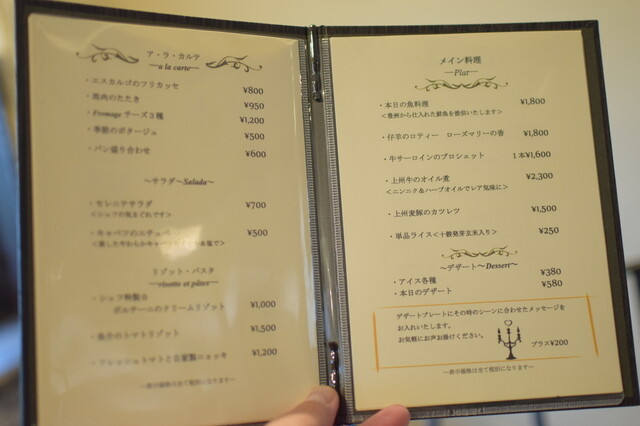 ア・ラ・カルテ
—a la carte—
・エスカルゴのフリカッセ ¥800
・馬肉のたたき ¥950
・Fromage チーズ3種 ¥1,200
・季節のポタージュ ¥500
・パン盛り合わせ ¥600
～サラダ～Salada～
・セレニテサラダ ¥700
<シェフの気まぐれです>
・キャベツのエチュベ ¥500
リゾット・パスタ
—risotto et pâtes—
・シェフ特製
ポルチーニのクリームリゾット ¥1,000
・魚介のトマトリゾット ¥1,500
・フレッシュトマトと自家製ニョッキ ¥1,200
～表示価格は全て税別になります～
メイン料理
—Plat—
・本日の魚料理 ¥1,800
<豊洲から仕入れた鮮魚を提供いたします>
・仔羊のロティー ローズマリーの香 ¥1,800
・牛サーロインのブロシェット 1本¥1,600
・上州牛のオイル煮 ¥2,300
<ニンニク&ハーブオイルでレア気味に>
・上州麦豚のカツレツ ¥1,500
・単品ライス<十穀発芽玄米入り> ¥250
～デザート～Dessert～
・アイス各種 ¥380
・本日のデザート ¥580
デザートプレートにその時のシーンに合わせたメッセージを
お入れいたします。
お気軽にお声お掛けください。
プラス¥200
～表示価格は全て税別になります～